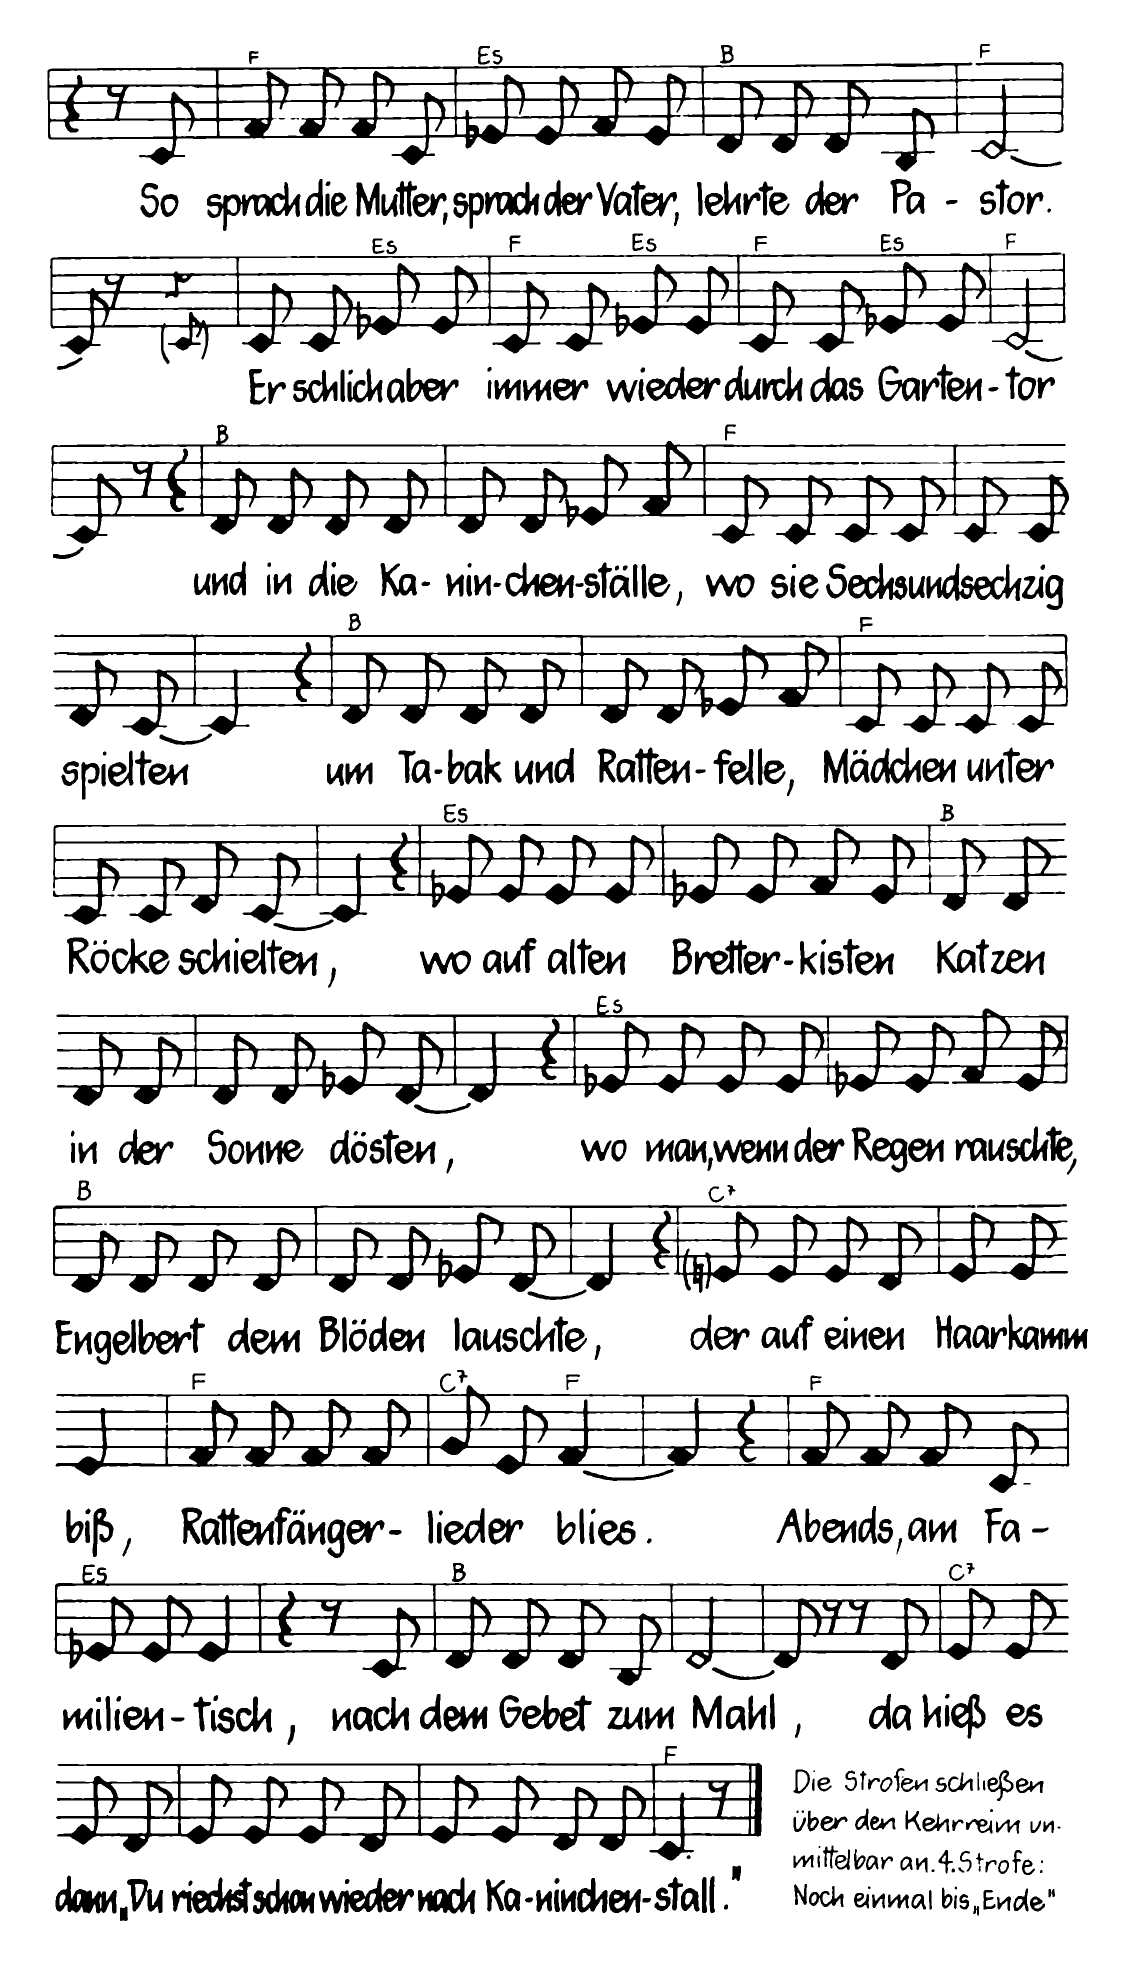 F Es B F
So sprach die Mutter, sprach der Vater, lehrte der Pa - stor.
Es F Es F Es F
Er schlich aber immer wieder durch das Garten - tor
B F
und in die Ka - nin - chen - ställe, wo sie Sechsundsechzig
B F
spielten um Ta - bak und Ratten - felle, Mädchen unter
Es B
Röcke schielten, wo auf alten Bretter - kisten Katzen
Es
in der Sonne dösten, wo man, wenn der Regen rauschte,
B C7
Engelbert dem Blöden lauschte, der auf einen Haarkamm
F C7 F F
biß, Rattenfänger - lieder blies. Abends, am Fa -
Es B C7
milien - tisch, nach dem Gebet zum Mahl, da hieß es
F
dann „Du riechst schon wieder nach Ka - ninchen - stall."
Die Strofen schließen
über den Kehrreim un-
mittelbar an. 4. Strofe:
Noch einmal bis „Ende"